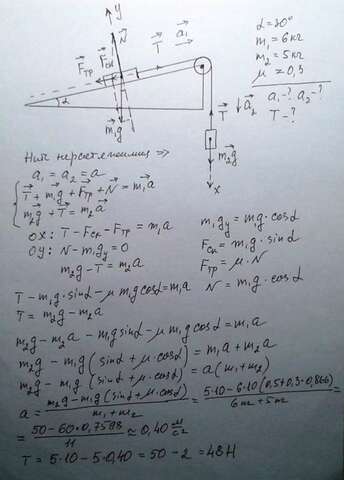 y
N
Fск
Fтр
T
a₁
α
m₁g
T
a₂
m₂g
x
α = 30°
m₁ = 6кг
m₂ = 5кг
μ = 0,3
a₁-? a₂-?
T-?
Нить нерастяжимая =>
a₁ = a₂ = a
T + m₁g + Fтр + N = m₁a
m₂g + T = m₂a
ox: T - Fск - Fтр = m₁a
oy: N - m₁gy = 0
m₂g - T = m₂a
m₁gy = m₁g·cosα
Fск = m₁g·sinα
Fтр = μ·N
N = m₁g·cosα
T - m₁g·sinα - μ m₁g cosα = m₁a
T = m₂g - m₂a
m₂g - m₂a - m₁g sinα - μ m₁g cosα = m₁a
m₂g - m₁g (sinα + μ·cosα) = m₁a + m₂a
m₂g - m₁g (sinα + μ·cosα) = a(m₁+m₂)
a = m₂g - m₁g (sinα + μ·cosα) / m₁+m₂ = 5·10 - 6·10 (0,5+0,3·0,866) / 6кг + 5кг =
= 50 - 60·0,7598 / 11 ≈ 0,40 м/с²
T = 5·10 - 5·0,40 = 50 - 2 = 48Н